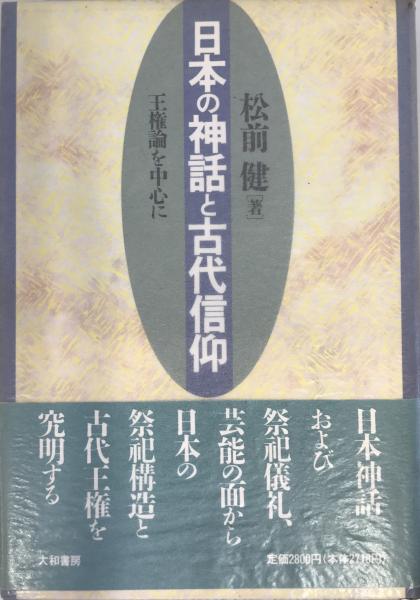 松前 健[著]
日本の神話と古代信仰
王権論を中心に
日本神話
および
祭祀儀礼、
芸能の面から
日本の
祭祀構造と
古代王権を
究明する
定価2800円(本体2718円)
大和書房